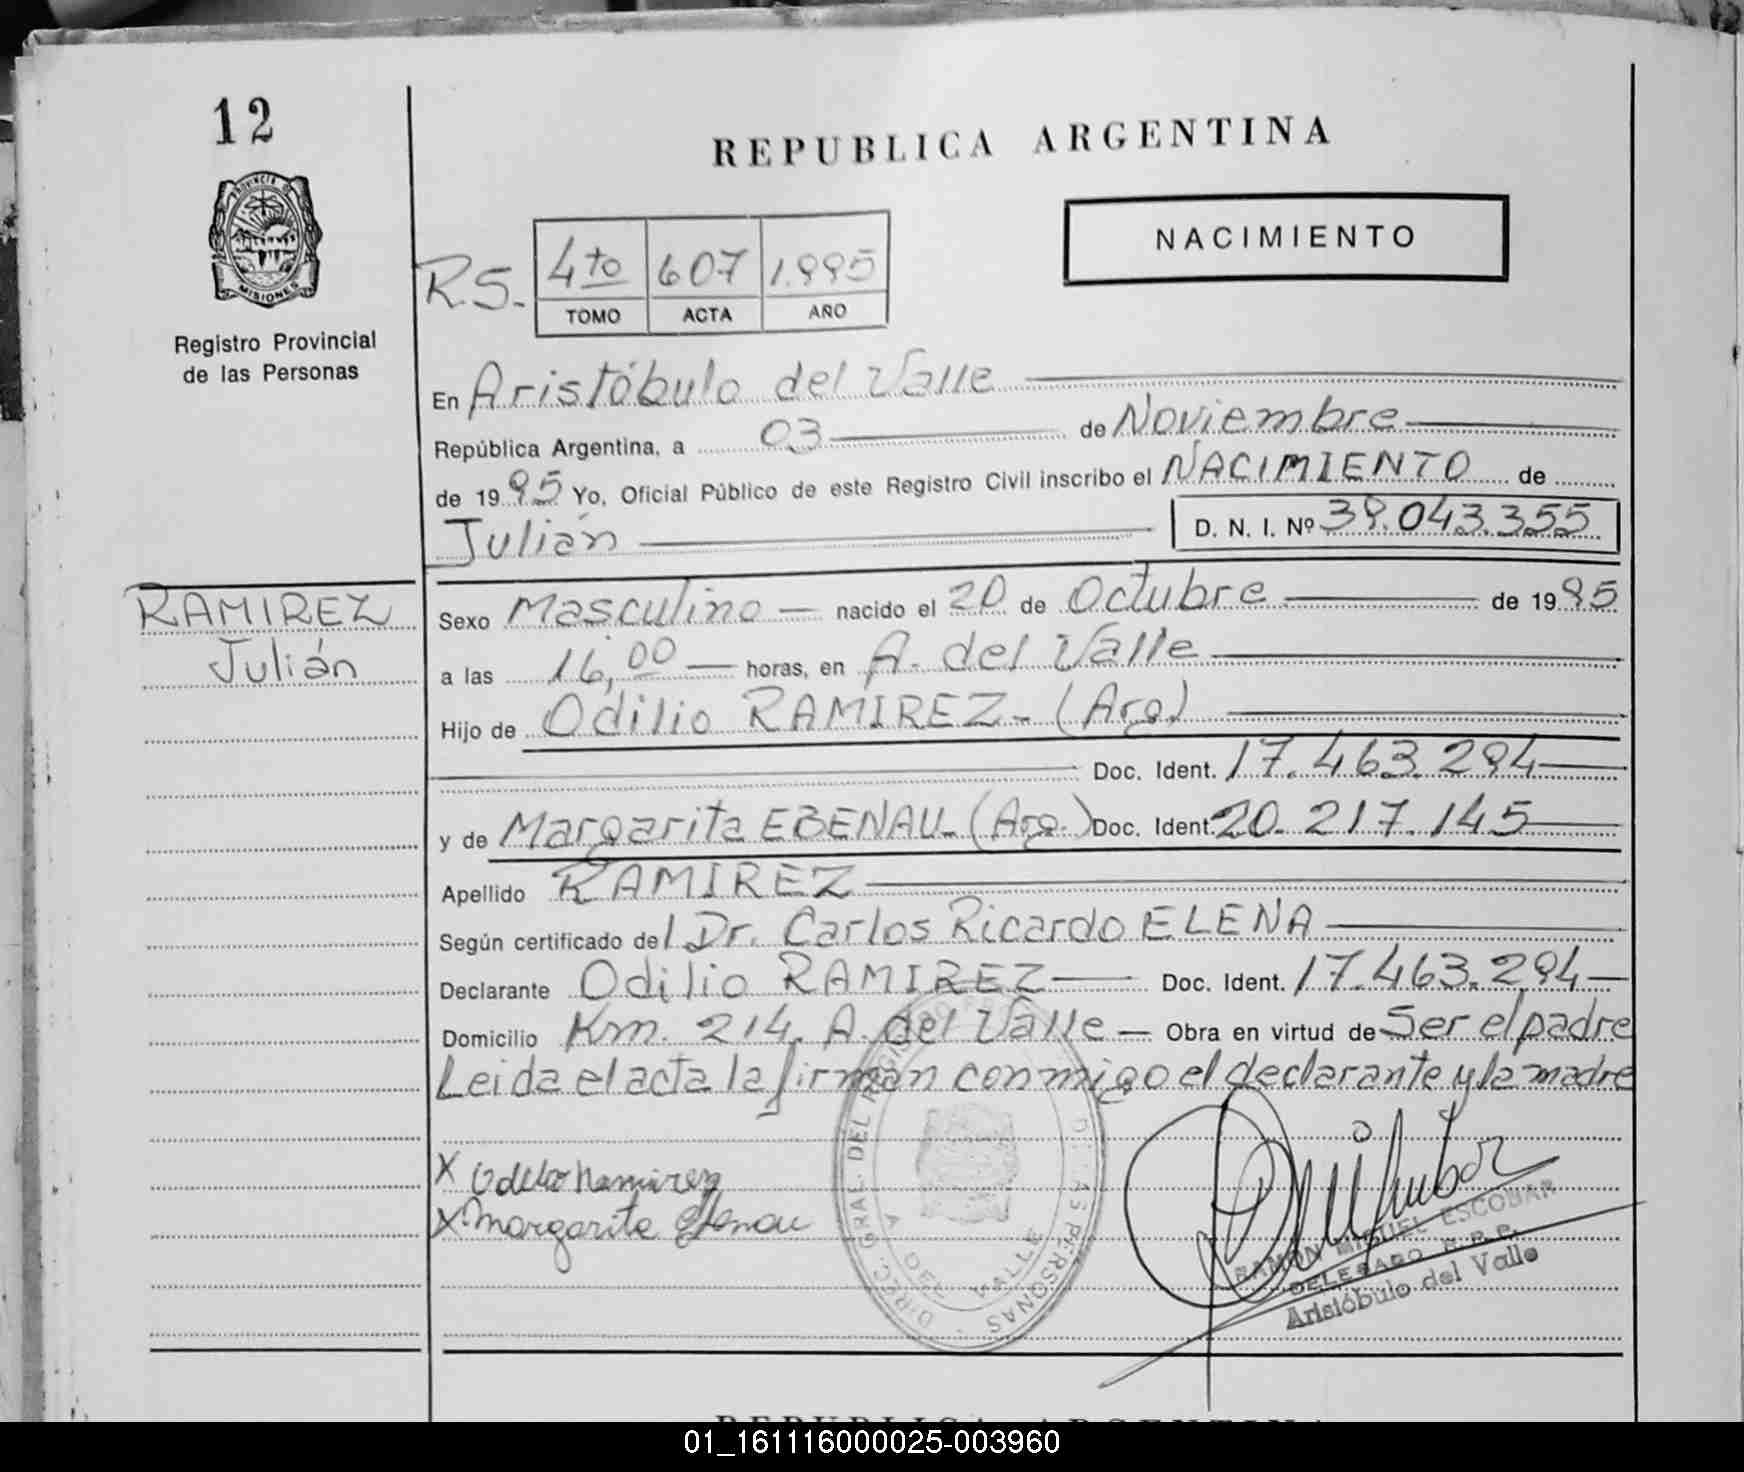 12
PROVINCIA DE
MISIONES
Registro Provincial
de las Personas
REPUBLICA ARGENTINA
NACIMIENTO
RS. 4to 607 1.995
TOMO ACTA AÑO
En Aristóbulo del Valle
República Argentina, a 03 de Noviembre
de 1995 Yo, Oficial Público de este Registro Civil inscribo el NACIMIENTO de
Julián D. N. I. Nº 39.043.355
RAMIREZ
Julián
Sexo Masculino nacido el 20 de Octubre de 1995
a las 16,00 horas, en A. del Valle
Hijo de Odilio RAMIREZ- (Arg)
Doc. Ident. 17.463.294
y de Margarita EBENAU (Arg.) Doc. Ident. 20.217.145
Apellido RAMIREZ
Según certificado del Dr. Carlos Ricardo ELENA
Declarante Odilio RAMIREZ Doc. Ident. 17.463.294
Domicilio Km. 214. A. del Valle Obra en virtud de Ser el padre
Leida el acta la firman conmigo el declarante y la madre
X Ramirez
X Margarita Ebenau
DIREC. GRAL. DEL PERSONAS
A DEL VALLE
RAMON MIGUEL ESCOBAR
DELEGADO R.P.P.
Aristóbulo del Valle
REPUBLICA ARGENTINA
01_161116000025-003960